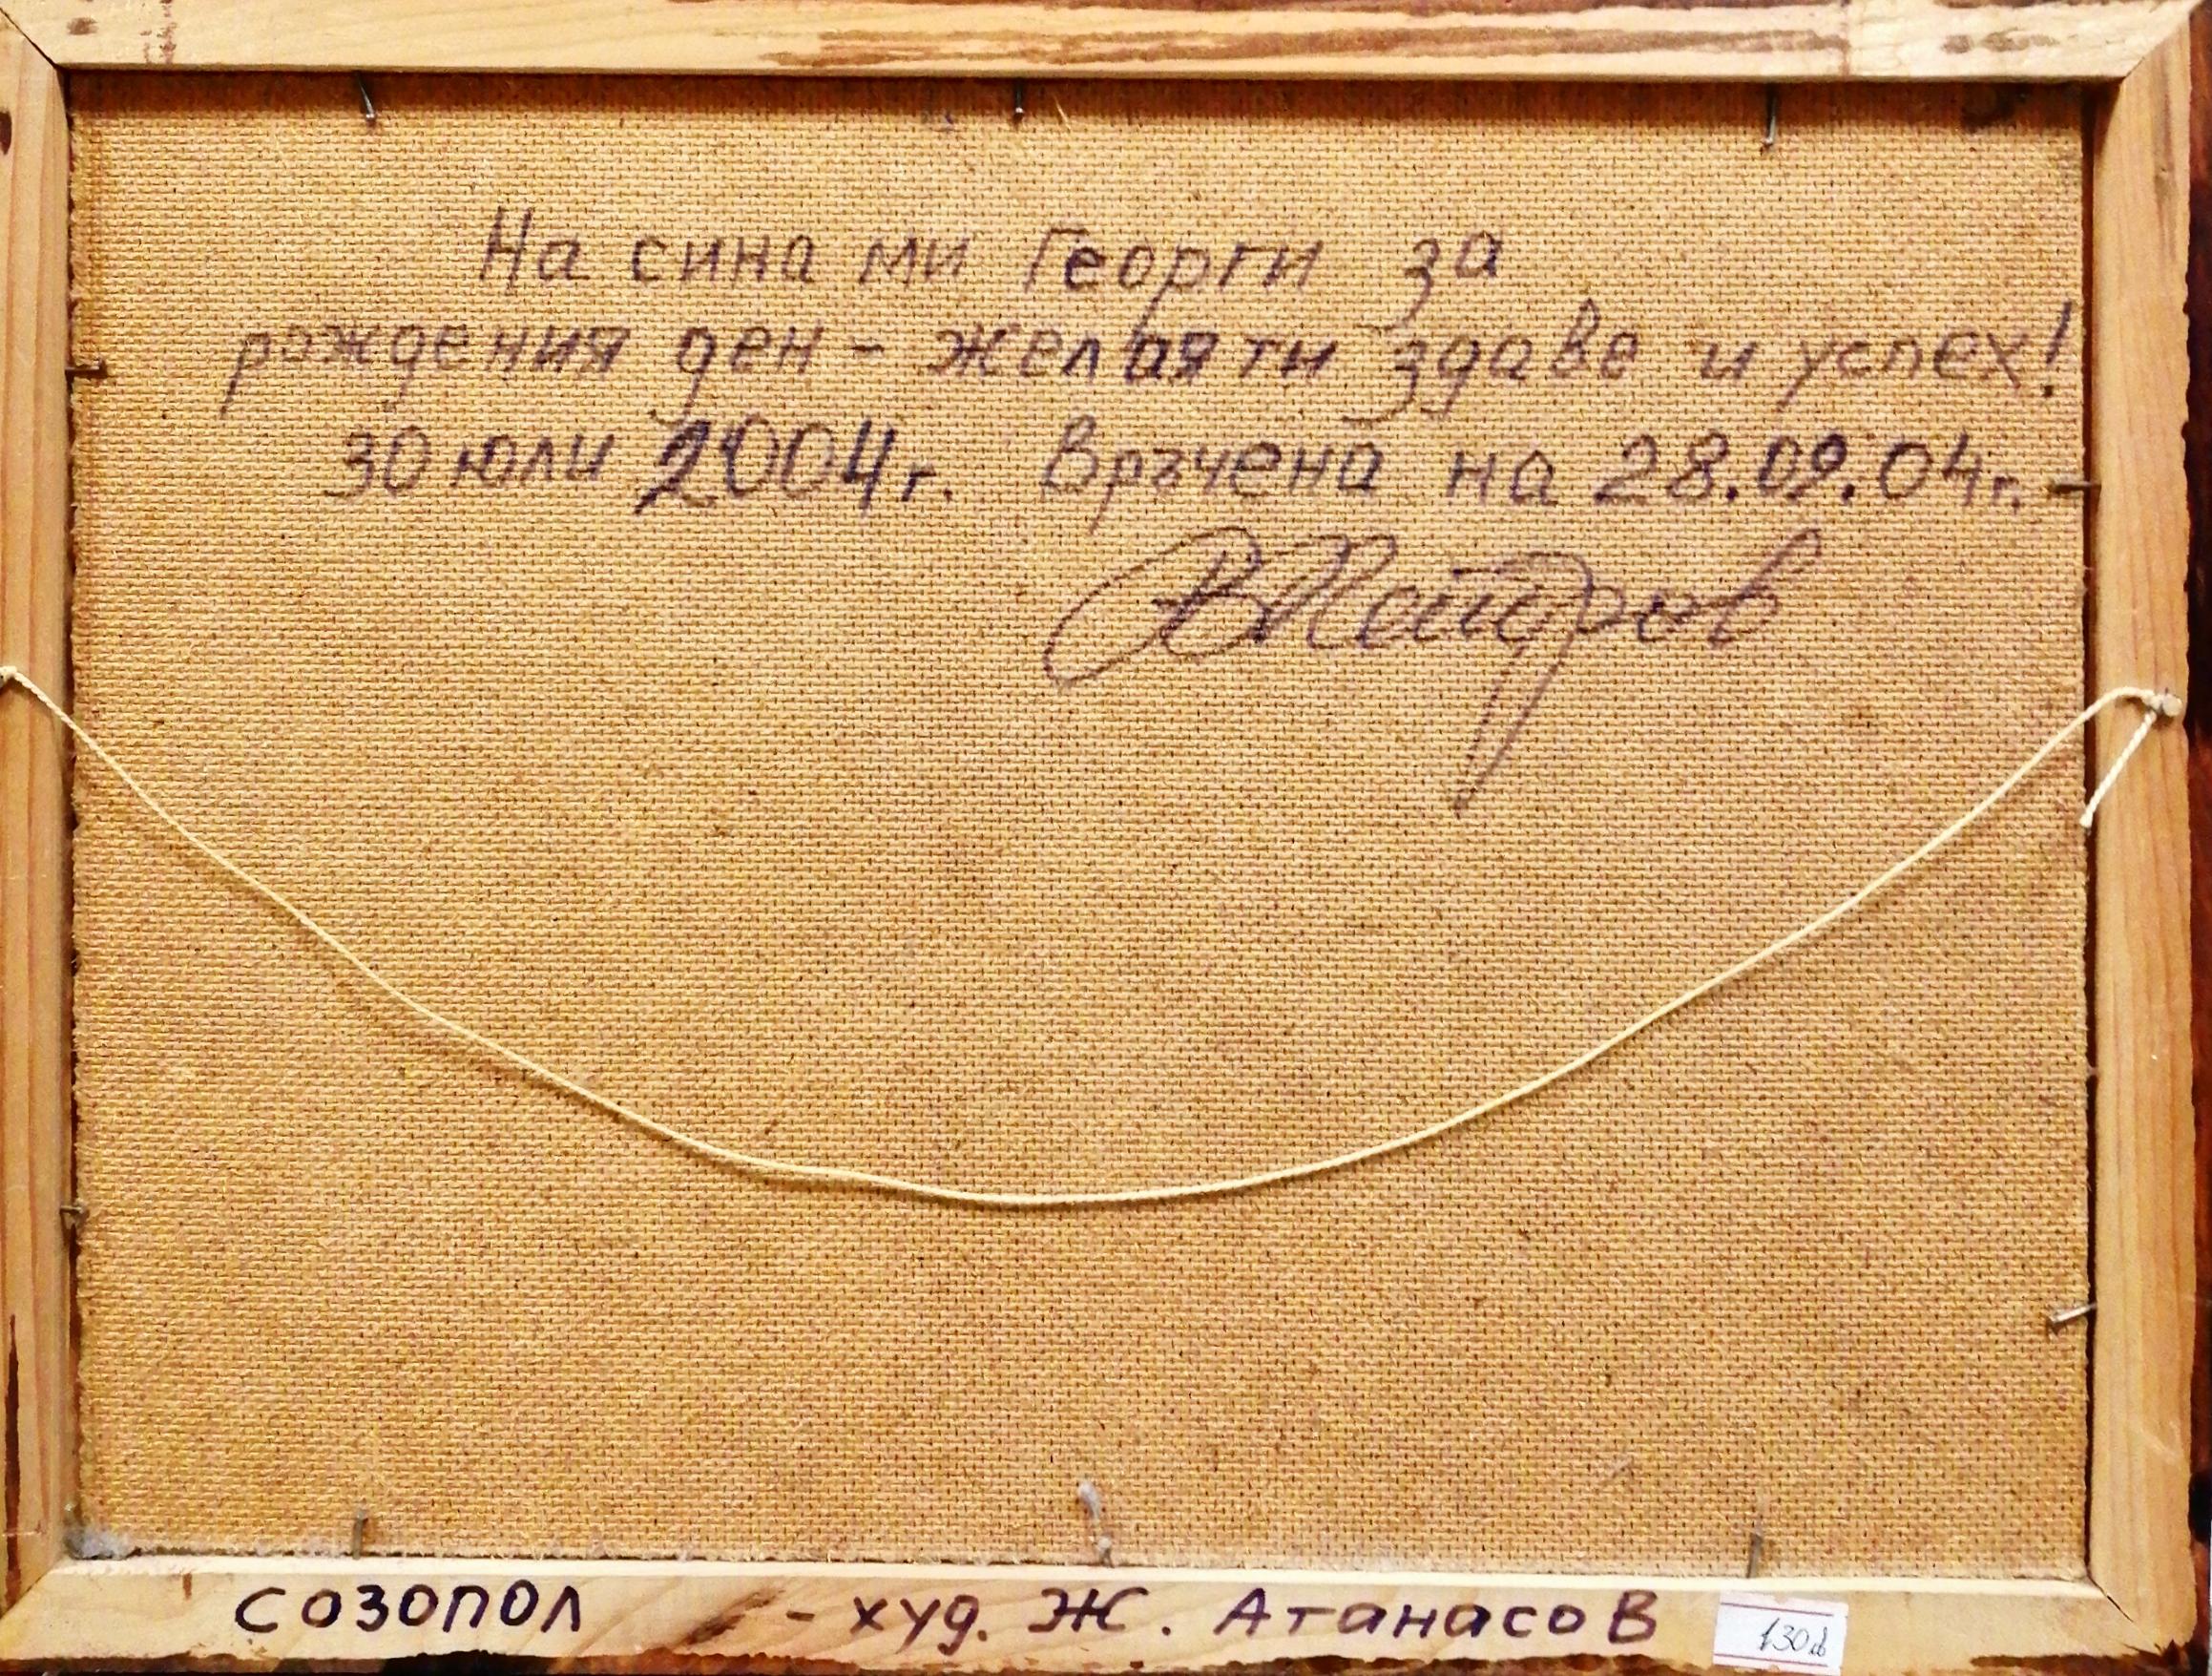 На сина ми Георги за
рождения ден - желая ти здаве и успех!
30 юли 2004г. Връчена на 28.09.04г.
СОЗОПОЛ - худ. Ж. Атанасов
130лв